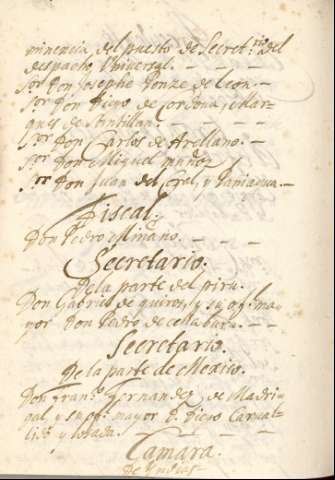 minencia del puesto de Secret.rio del
despacho Vniversal.
Sor Don Josephe Ponze de Leon.
Sor Don Diego de Cordoua, i Mar-
ques de Santillan.
Sor Don Carlos de Arellano.
Sor Don Miguel muñoz
Sor Don Juan del Coral, y Paniagua.
Fiscal.
Don Pedro
Secretario.
De la parte del piru.
Don Gabriel de quiros, y su offi.l ma
yor Don Pedro de
Secretario.
De la parte de Mexico.
Don Fran.co Fernandez de Madri
gal y su offi. mayor D. Diego Carual-
Camara.
De Yndias